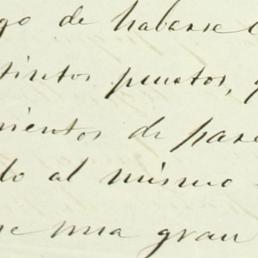 go de haberse
tintos puestos,
mientos de pare
do al mismo
ue una gran